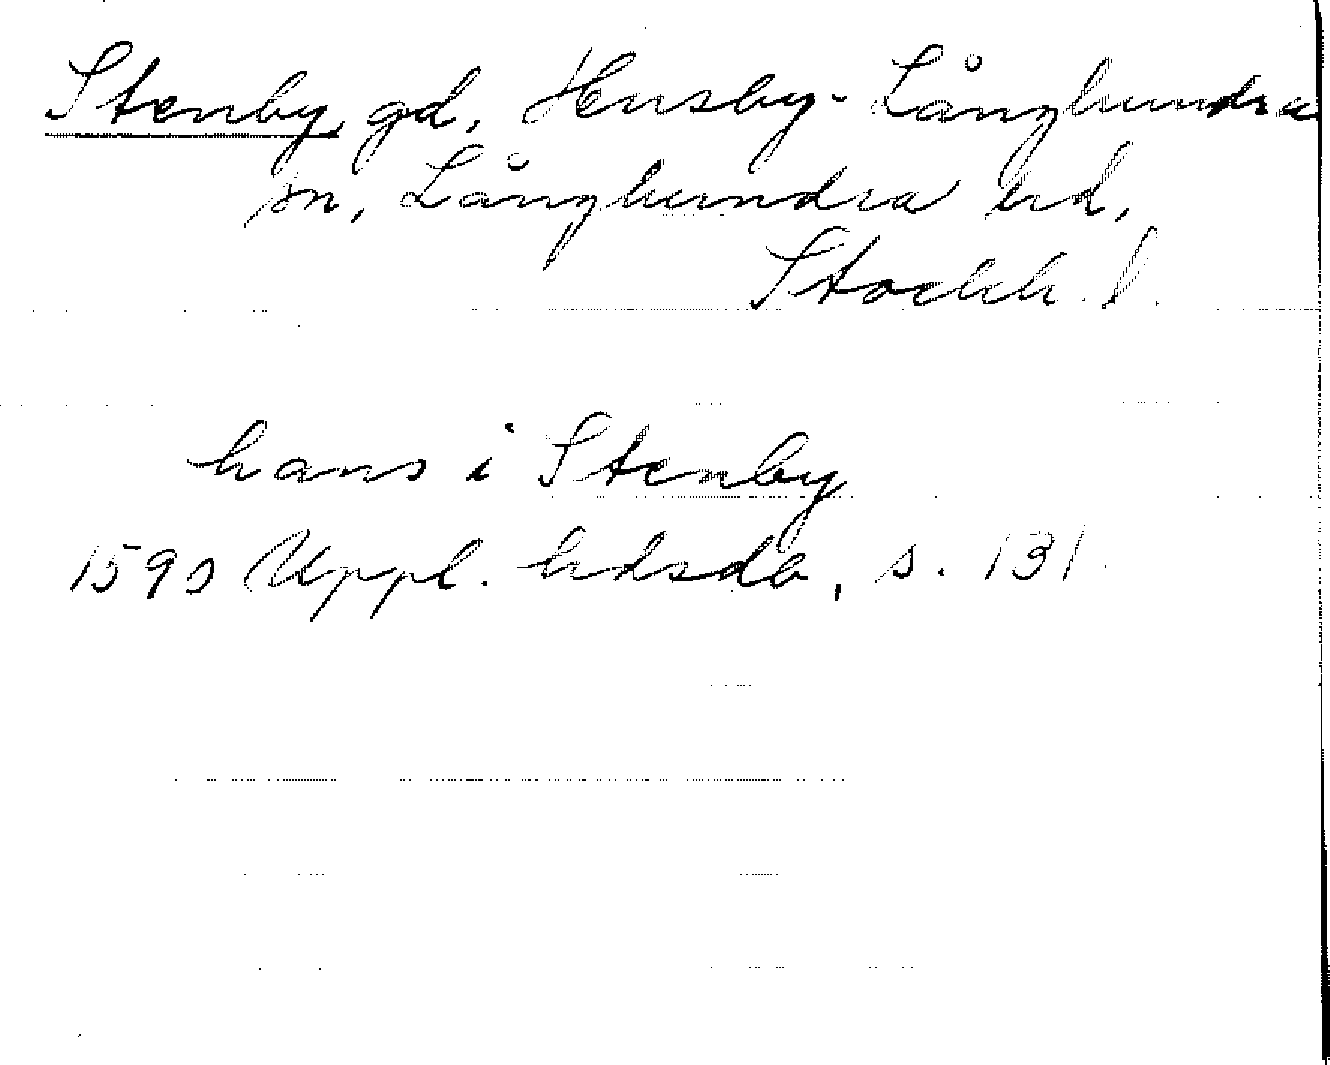 Stenby gd, Husby-Långhundra
sn, Långhundra hd,
Stockh. l.
hans i Stenby
1590 Uppl. hdsdb, s. 131.